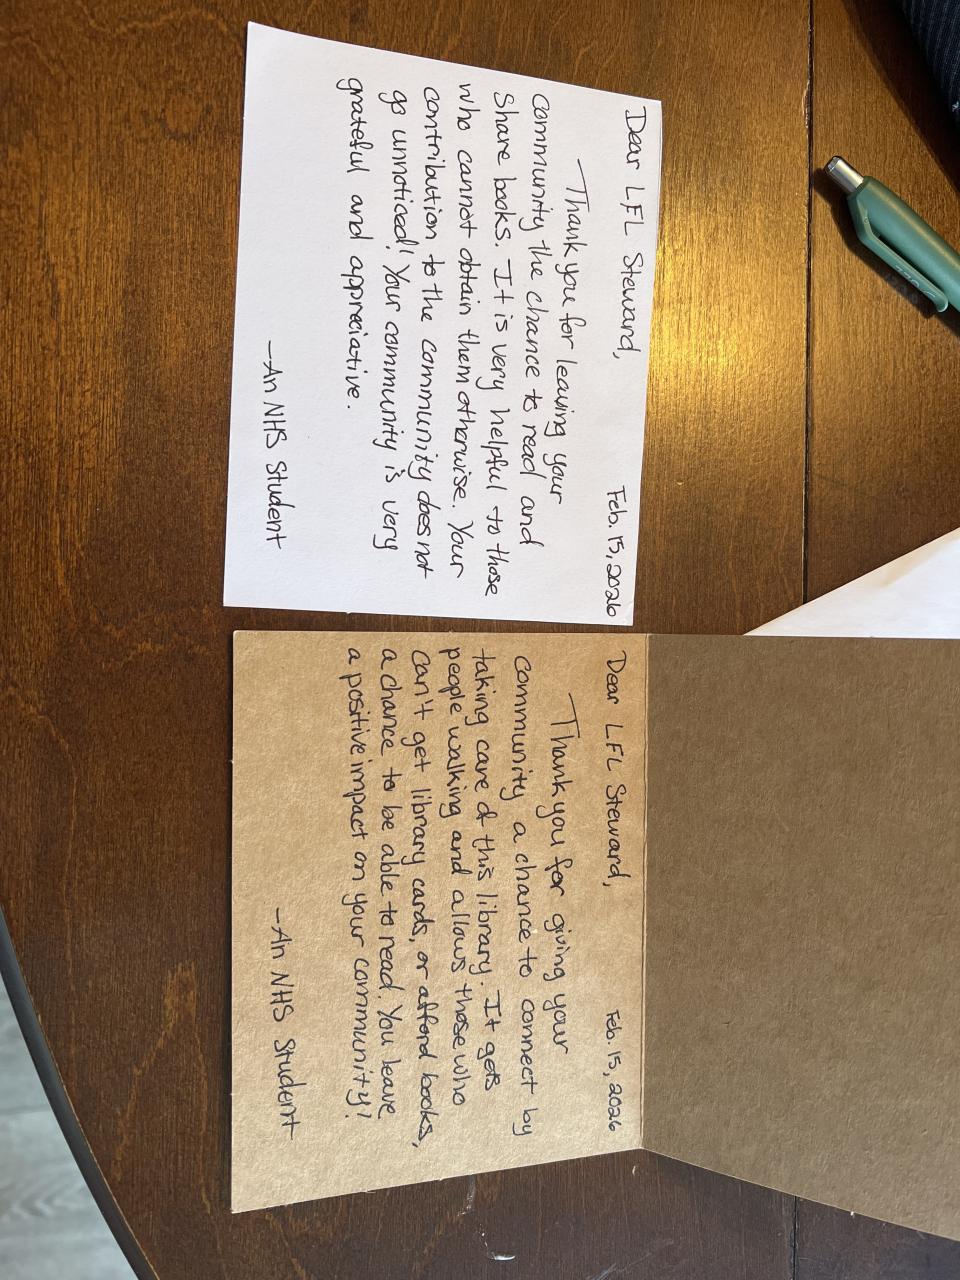 Feb. 15, 2026
Dear LFL Steward,
Thank you for leaving your
community the chance to read and
share books. It is very helpful to those
who cannot obtain them otherwise. Your
contribution to the community does not
go unnoticed! Your community is very
grateful and appreciative.
-An NHS Student
Feb. 15, 2026
Dear LFL Steward,
Thank you for giving your
community a chance to connect by
taking care of this library. It gets
people walking and allows those who
can't get library cards, or afford books,
a chance to be able to read. You leave
a positive impact on your community!
-An NHS Student